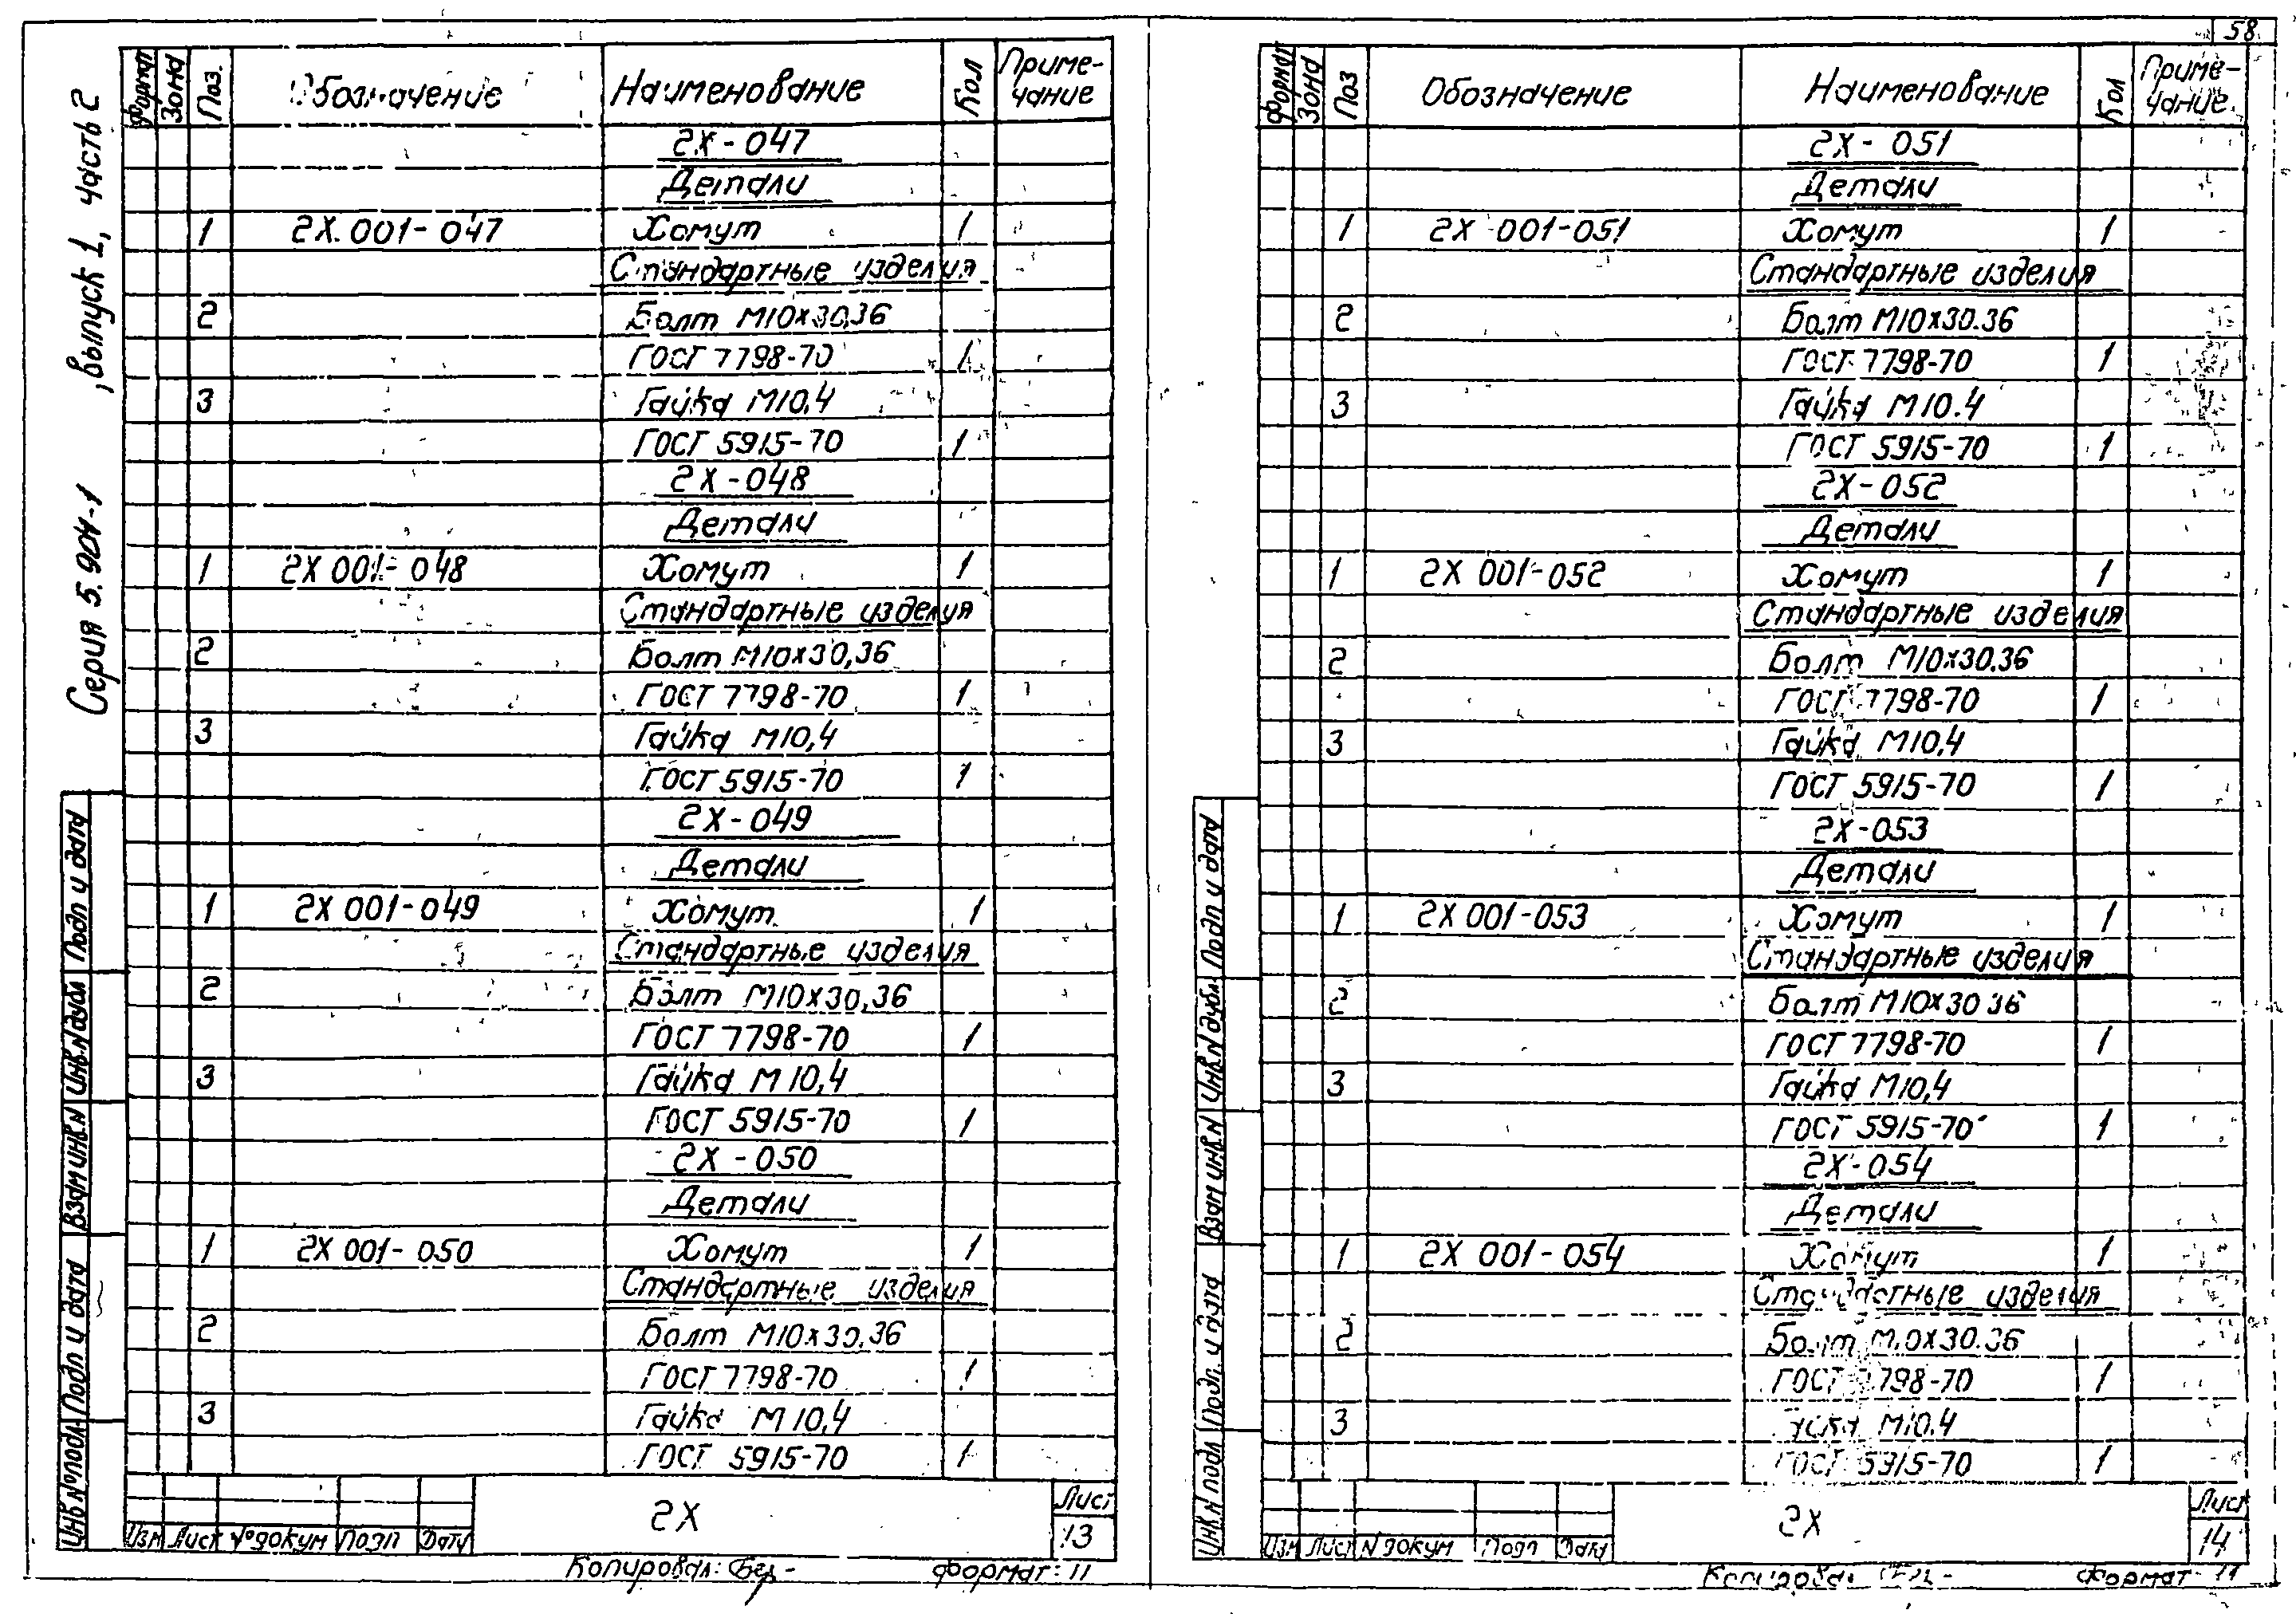 58
Серия 5.904-1 , выпуск 1, часть 2
Формат Зона Поз. Обозначение Наименование Кол Приме-
чание
2Х-047
Детали
1 2Х.001-047 Хомут 1
Стандартные изделия
2 Болт М10х30,36
ГОСТ 7798-70 1
3 Гайка М10,4
ГОСТ 5915-70 1
2Х-048
Детали
1 2Х 001-048 Хомут 1
Стандартные изделия
2 Болт М10х30,36
ГОСТ 7798-70 1
3 Гайка М10,4
ГОСТ 5915-70 1
2Х-049
Детали
1 2Х 001-049 Хомут 1
Стандартные изделия
2 Болт М10х30,36
ГОСТ 7798-70 1
3 Гайка М10,4
ГОСТ 5915-70 1
2Х-050
Детали
1 2Х 001-050 Хомут 1
Стандартные изделия
2 Болт М10х30.36
ГОСТ 7798-70 1
3 Гайка М10,4
ГОСТ 5915-70 1
Подп и дата
Инв.N дубл
Взам инв.N
Подп и дата
Инв N°подл
2Х
Лист
13
Изм Лист N°докум Подп Дата
Копировал: Формат: 11
Формат Зона Поз Обозначение Наименование Кол Приме-
чание
2Х-051
Детали
1 2Х 001-051 Хомут 1
Стандартные изделия
2 Болт М10х30.36
ГОСТ 7798-70 1
3 Гайка М10.4
ГОСТ 5915-70 1
2Х-052
Детали
1 2Х 001-052 Хомут 1
Стандартные изделия
2 Болт М10х30.36
ГОСТ 7798-70 1
3 Гайка М10,4
ГОСТ 5915-70 1
2Х-053
Детали
1 2Х 001-053 Хомут 1
Стандартные изделия
2 Болт М10х30 36
ГОСТ 7798-70 1
3 Гайка М10,4
ГОСТ 5915-70 1
2Х-054
Детали
1 2Х 001-054 Хомут 1
Стандартные изделия
2 Болт М10х30.36
ГОСТ 7798-70 1
3 Гайка М10.4
ГОСТ 5915-70 1
Подп и дата
Инв.N дубл
Взам инв.N
Подп. и дата
Инв.N подл
2Х
Лист
14
Изм Лист N докум Подп Дата
Копировал Формат 11